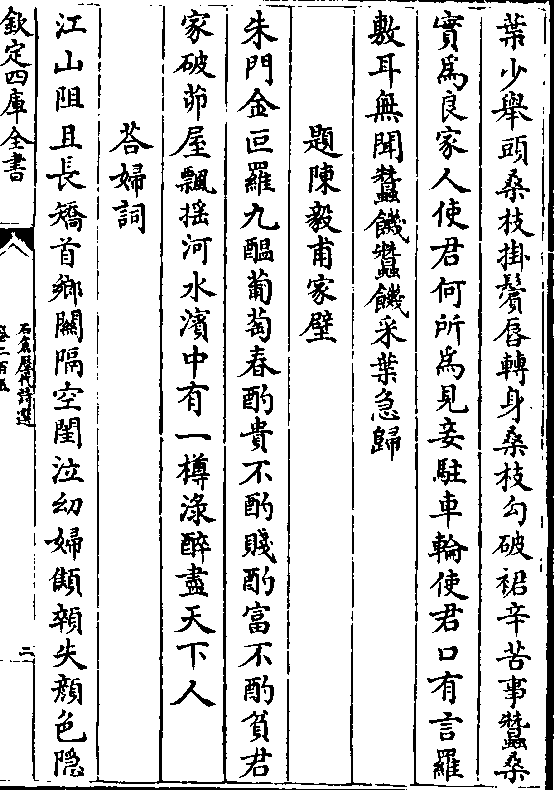 葉少舉頭桑枝掛鬢唇轉身桑枝勾破裙辛苦事蠶桑
實爲良家人使君何所爲見妾駐車輪使君口有言羅
敷耳無聞蠶饑蠶饑采葉急歸
題陳毅甫家壁
朱門金叵羅九醞葡萄春酌貴不酌賤酌富不酌貧君
家破茆屋飄揺河水濱中有一樽淥醉盡天下人
荅婦詞
江山阻且長矯首鄉關隔空閨泣幼婦顦顇失顔色隠
欽定四庫全書
石倉歴代詩選
卷二百五
二